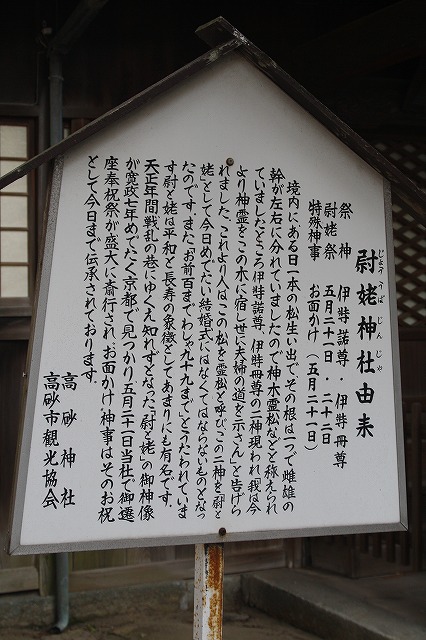 尉姥神社由来
じょううばじんじゃ
祭神 伊弉諾尊・伊弉冊尊
尉姥祭 五月二十一日・二十二日
特殊神事 お面かけ(五月二十一日)
境内にある日一本の松生い出でその根は一つで雌雄の
幹が左右に分れていましたので神木霊松などと称えられ
ていましたところ伊弉諾尊、伊弉冊尊の二神現われ「我は今
より神霊をこの木に宿し世に夫婦の道を示さん」と告げら
れました、これより人はこの松を霊松と呼びこの二神を「尉と
姥」として今日めでたい結婚式にはなくてはならないものとなっ
たのです。また「お前百まで、わしゃ九十九まで」とうたわれていま
す尉と姥は平和と長寿の象徴としてあまりにも有名です。
天正年間戦乱の巷にゆくえ知れずとなった「尉と姥」の御神像
が寛政七年めでたく京都で見つかり五月二十一日当社で御遷
座奉祝祭が盛大に斎行され、お面かけ神事はそのお祝
として今日まで伝承されております。
高砂神社
高砂市観光協会